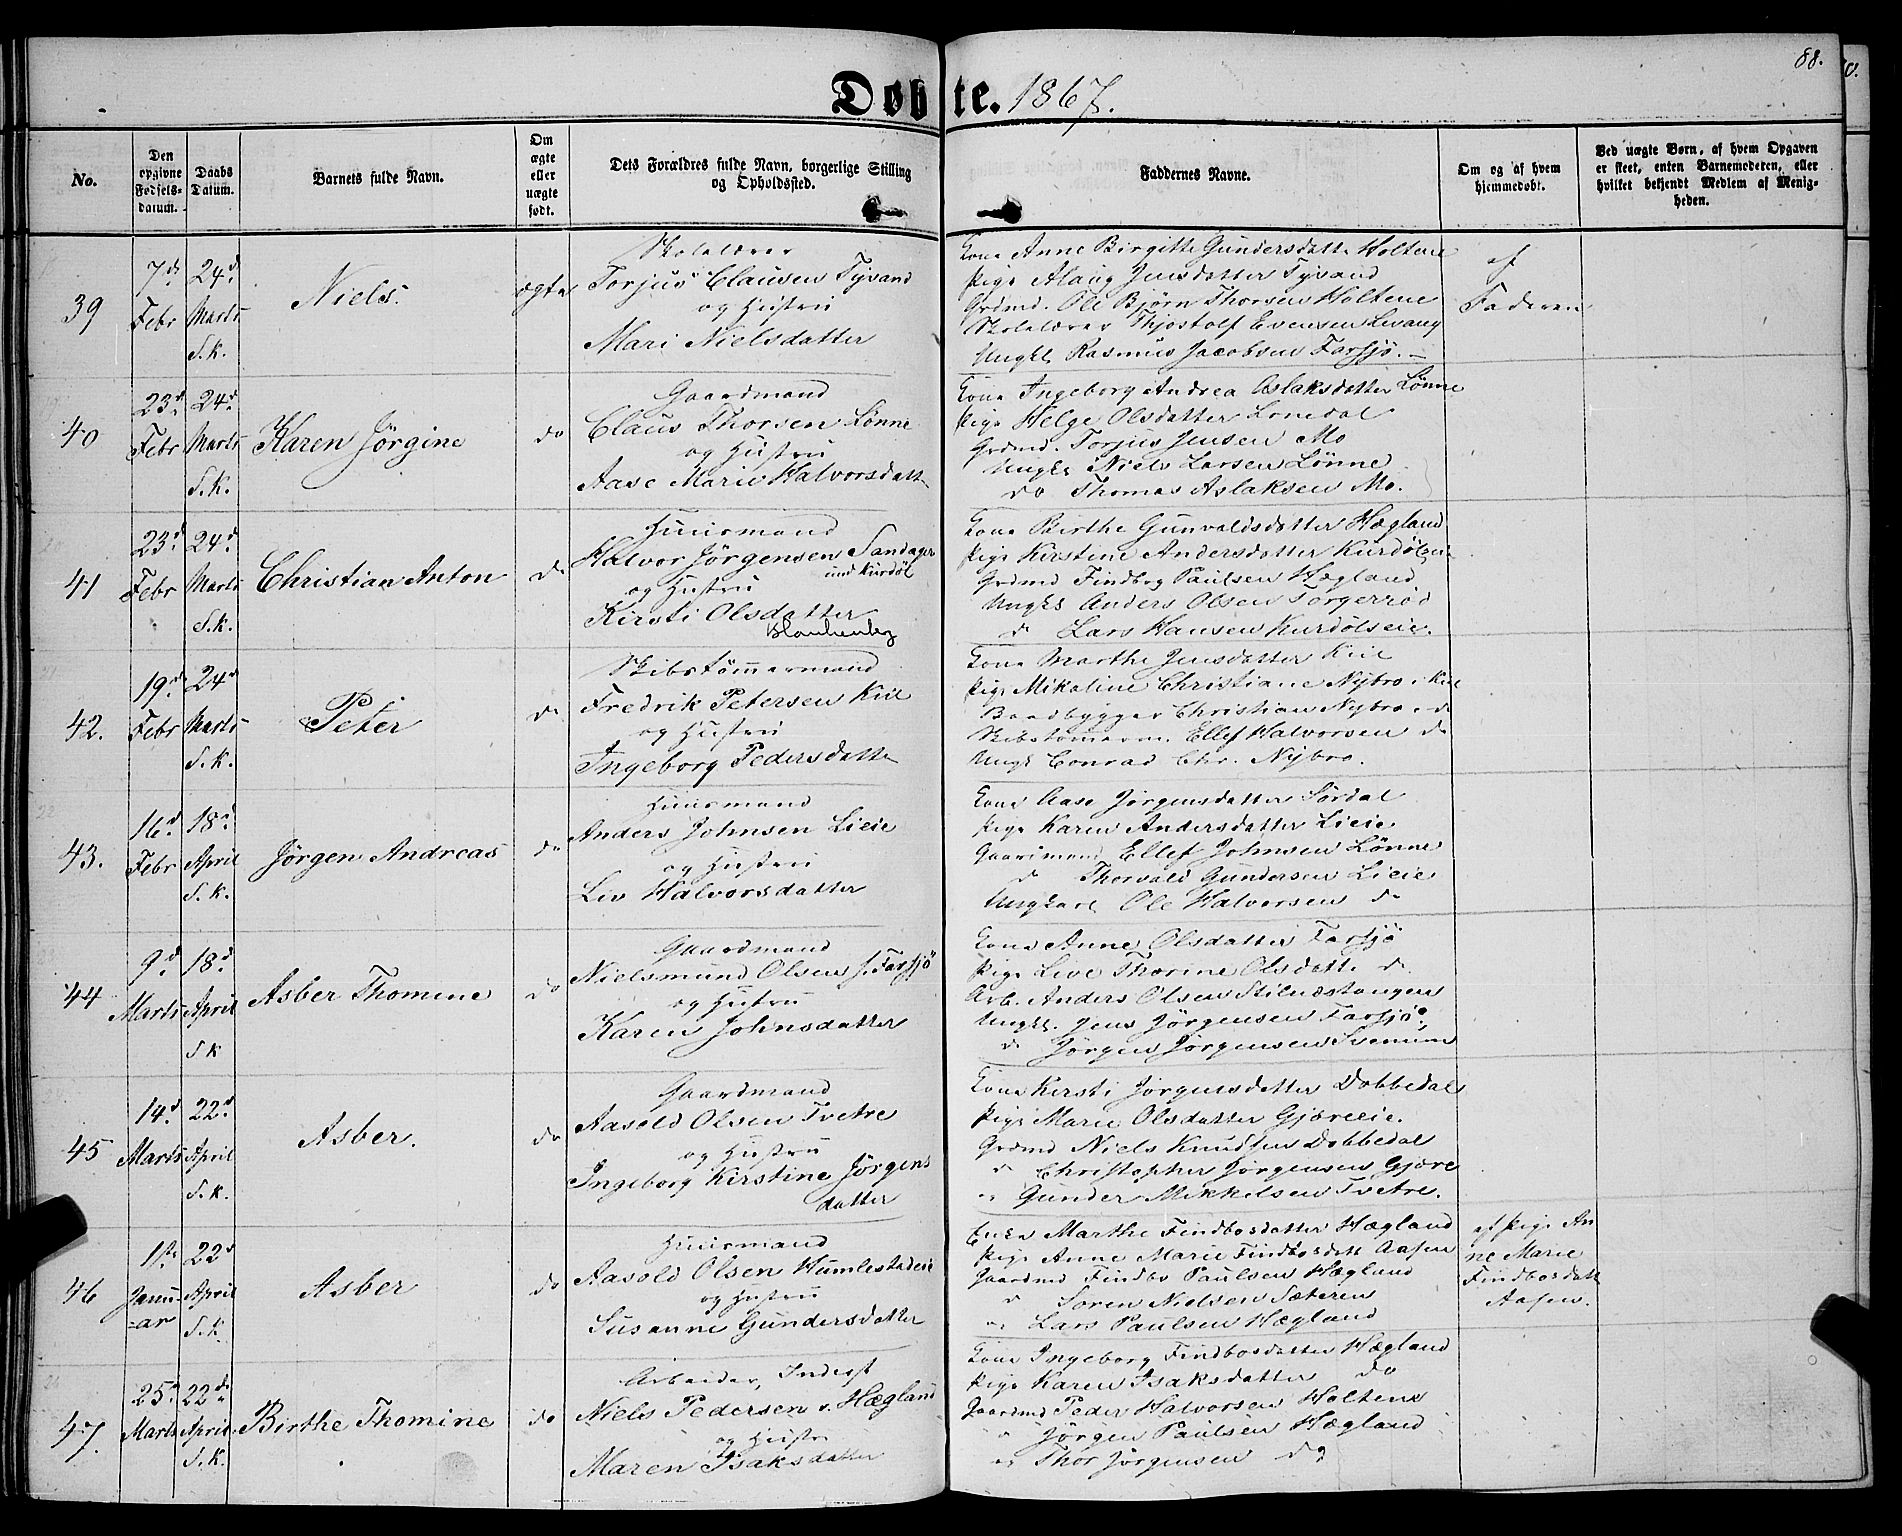 88.
Døbte. 1867.
No.
Den opgivne Fødsels-datum.
Daabs Datum.
Barnets fulde Navn.
Om ægte eller uægte født.
Dets Forældres fulde Navn, borgerlige Stilling og Opholdssted.
Faddernes Navne.
Om og af hvem hjemmedøbt.
Ved uægte Børn, af hvem Opgaven er skeet, enten Barnemoderen, eller hvilket bekjendt Medlem af Menigheden.
39
7d. Febr
24d. Marts S.k.
Niels.
ægte
Skolelærer
Torjus Clausen Tyvand
og Hustru
Mari Nielsdatter
Kone Anne Birgitte Gundersdatte Holtene
Pige Aslaug Jensdatter Tyvand
Grdmd. Ole Bjørn Thorsen Holtene
Skolelærer Thjostolf Evensen Levang
Ungk. Rasmus Jacobsen Farsjø.
af Faderen
40
23d. Febr
24d. Marts S.k.
Karen Jörgine
do
Gaardmand
Claus Thorsen Lönne
og Hustru
Aase Marie Halvorsdatt
Kone Ingeborg Andrea Aslaksdatter Lönne
Pige Helge Olsdatter Lonedal
Grdmd. Torjus Jensen Mo
Ungk. Niels Larsen Lönne
do Thomas Aslaksen Mo.
41
23d. Febr
24d. Marts S.k.
Christian Anton
do
Huusmand
Halvor Jörgensen Sandager
und Kurdöl
og Hustru
Kirsti Olsdatter
Blankenberg
Kone Birthe Gunvaldsdatter Hægland
Pige Kirstine Andersdatter Kurdölseie
Grdmd Findbog Paulsen Hægland
Ungk. Anders Olsen Torgersröd
d Lars Hansen Kurdölseie.
42.
19d. Febr
24d Marts S.k.
Peter
do
Skibstömmermand
Fredrik Petersen Kiil
og Hustru
Ingeborg Pedersdatte
Kone Marthe Jensdatter Kiil
Pige Mikaline Christiane Nybro, Kiil
Baadbygger Christian Nybro, do
Skibstömerm. Ellef Halvorsen do
Ungk Conrad Chr. Nybro.
43.
16d. Febr
18d. April S.k.
Jörgen Andreas
do
Huusmand
Anders Johnsen Lieie
og Hustru
Liv Halvorsdatter
Kone Aase Jörgensdatter Sördal
Pige Karen Andersdatter Lieie
Gaardmand Ellef Johnsen Lönne
d Thorvald Gundersen Lieie
Ungkarl Ole Halvorsen do
44
9d. Marts
18d. April S.k
Asber Thomine
do
Gaardmand
Nielsmund Olsen s. Farsjö
og Hustru
Karen Johnsdatter
Kone Anne Olsdatter Farsjö
Pige Live Thorine Olsdatt. do
Arb. Anders Olsen Stilnæstangen
Ungk. Jens Jörgensen Farsjö
d Jörgen Jörgensen
45
14d. Marts
22d. April S.k.
Asber.
do
Gaardmand
Aasold Olsen Tvetre
og Hustru
Ingeborg Kirstine Jörgens
datter
Kone Kirsti Jörgensdatter Dobbedal
Pige Marie Olsdatter Gjereeie.
Grdmd Niels Knudsen Dobbedal
d Christopher Jörgensen Gjere
d Gunder Mikkelsen Tvetre.
46
1ste Janu=ar
22d April S.k.
Asber
do
Huusmand
Aasold Olsen Humlestadeie
og Hustru
Susanne Gundersdatter
Enke Marthe Findbosdatter Hægland
Pige Anne Marie Findbosdatt Aasen
Gaardmd Findbo Paulsen Hægland
d Soren Nielsen Sæteren
d Lars Paulsen Hægland
af Pige An
ne Marie
Findbosdatt
Aasen.
47.
25d Marts
22de April S.k.
Birthe Thomine
do
Arbeider, Inderst
Niels Pedersen v. Hægland
og Hustru
Maren Isaksdatter
Kone Ingeborg Findbosdatter Hægland
Pige Karen Isaksdatter do
Gaardmd Peder Halvorsen Holtene
d Jörgen Paulsen Hægland
d Thor Jörgensen do